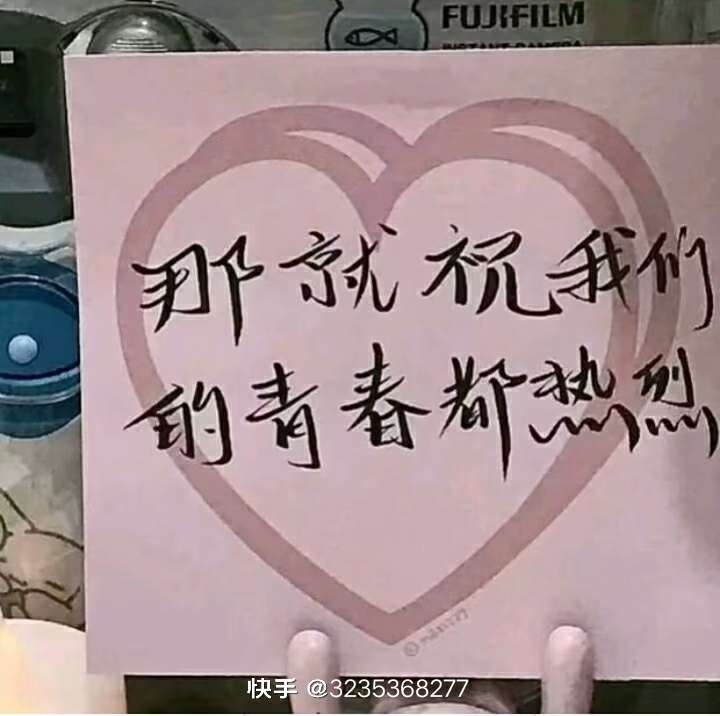 FUJIFILM
INSTANT CAMERA
那就祝我们
的青春都热烈
快手 @3235368277